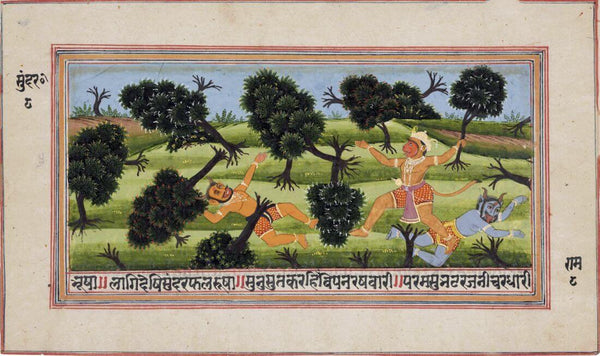 सुंदर॰
८
भूषा॥लागिदेषिसुंदरफलरूषा॥सुनुसुतकरहिंविपनरषवारी॥परमसुभटरजनीचरधारी
राम
८